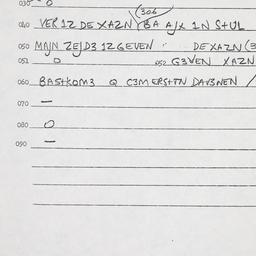 030 O
(306
040 VER 1Z DE XAZN (BA A/X 1N S+UL
050 MA/N ZE/D3 1ZGEVEN : DEXAZN (3
051 O 052 G3VEN XAZN
060 BAS+KOM3 Q C3MERS+TN DAV3NEN /
070 —
080 O
090 —